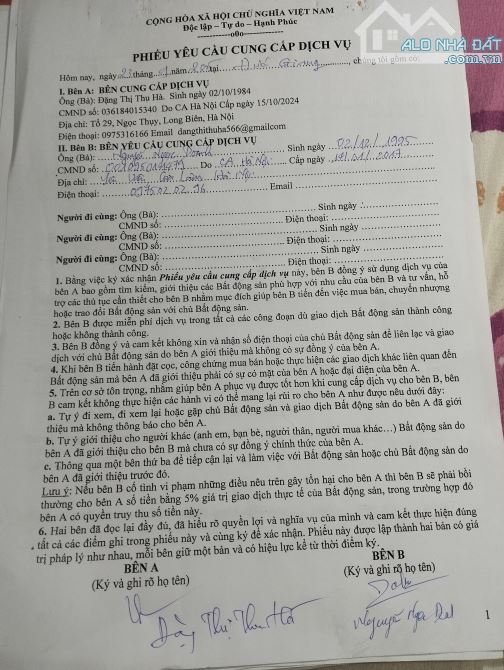 CỘNG HÒA XÃ HỘI CHỦ NGHĨA VIỆT NAM
Độc lập – Tự do – Hạnh Phúc
----------o0o----------
ALO NHÀ ĐẤT
.com.vn
PHIẾU YÊU CẦU CUNG CẤP DỊCH VỤ
Hôm nay, ngày tháng năm tại , chúng tôi gồm có:
I. Bên A: BÊN CUNG CẤP DỊCH VỤ
Ông (Bà): Đặng Thị Thu Hà. Sinh ngày 02/10/1984
CMND số: 036184015340 Do CA Hà Nội Cấp ngày 15/10/2024
Địa chỉ: Tổ 29, Ngọc Thụy, Long Biên, Hà Nội
Điện thoại: 0975316166 Email dangthithuha566@gmailcom
II. Bên B: BÊN YÊU CẦU CUNG CẤP DỊCH VỤ
Ông (Bà): Nguyễn Ngọc Sinh ngày 02/10/1995
CMND số: Do CA Hà Nội Cấp ngày
Địa chỉ: Hà Nội
Điện thoại: Email
Người đi cùng: Ông (Bà): Sinh ngày
CMND số: Điện thoại:
Người đi cùng: Ông (Bà): Sinh ngày
CMND số: Điện thoại:
Người đi cùng: Ông (Bà): Sinh ngày
CMND số: Điện thoại:
1. Bằng việc ký xác nhận Phiếu yêu cầu cung cấp dịch vụ này, bên B đồng ý sử dụng dịch vụ của
bên A bao gồm tìm kiếm, giới thiệu các Bất động sản phù hợp với nhu cầu của bên B và tư vấn, hỗ
trợ các thủ tục cần thiết cho bên B nhằm mục đích giúp bên B tiến đến việc mua bán, chuyển nhượng
hoặc trao đổi Bất động sản với chủ Bất động sản.
2. Bên B được miễn phí dịch vụ trong tất cả các công đoạn dù giao dịch Bất động sản thành công
hoặc không thành công.
3. Bên B đồng ý và cam kết không xin và nhận số điện thoại của chủ Bất động sản để liên lạc và giao
dịch với chủ Bất động sản do bên A giới thiệu mà không có sự đồng ý của bên A.
4. Khi bên B tiến hành đặt cọc, công chứng mua bán hoặc thực hiện các giao dịch khác liên quan đến
Bất động sản mà bên A đã giới thiệu phải có sự có mặt của bên A hoặc đại diện của bên A.
5. Trên cơ sở tôn trọng, nhằm giúp bên A phục vụ được tốt hơn khi cung cấp dịch vụ cho bên B, bên
B cam kết không thực hiện các hành vi có thể mang lại rủi ro cho bên A như được nêu dưới đây:
a. Tự ý đi xem, đi xem lại hoặc gặp chủ Bất động sản và giao dịch Bất động sản do bên A đã giới
thiệu mà không thông báo cho bên A.
b. Tự ý giới thiệu cho người khác (anh em, bạn bè, người thân, người mua khác…) Bất động sản do
bên A đã giới thiệu cho bên B mà chưa có sự đồng ý chính thức của bên A.
c. Thông qua một bên thứ ba để tiếp cận lại và làm việc với Bất động sản hoặc chủ Bất động sản do
bên A đã giới thiệu trước đó.
Lưu ý: Nếu bên B cố tình vi phạm những điều nêu trên gây tổn hại cho bên A thì bên B sẽ phải bồi
thường cho bên A số tiền bằng 5% giá trị giao dịch thực tế của Bất động sản, trong trường hợp đó
bên A có quyền truy thu số tiền này.
6. Hai bên đã đọc lại đầy đủ, đã hiểu rõ quyền lợi và nghĩa vụ của mình và cam kết thực hiện đúng
tất cả các điểm ghi trong phiếu này và cùng ký để xác nhận. Phiếu này được lập thành hai bản có giá
trị pháp lý như nhau, mỗi bên giữ một bản và có hiệu lực kể từ thời điểm ký.
BÊN A BÊN B
(Ký và ghi rõ họ tên) (Ký và ghi rõ họ tên)
Đặng Thị Thu Hà
1